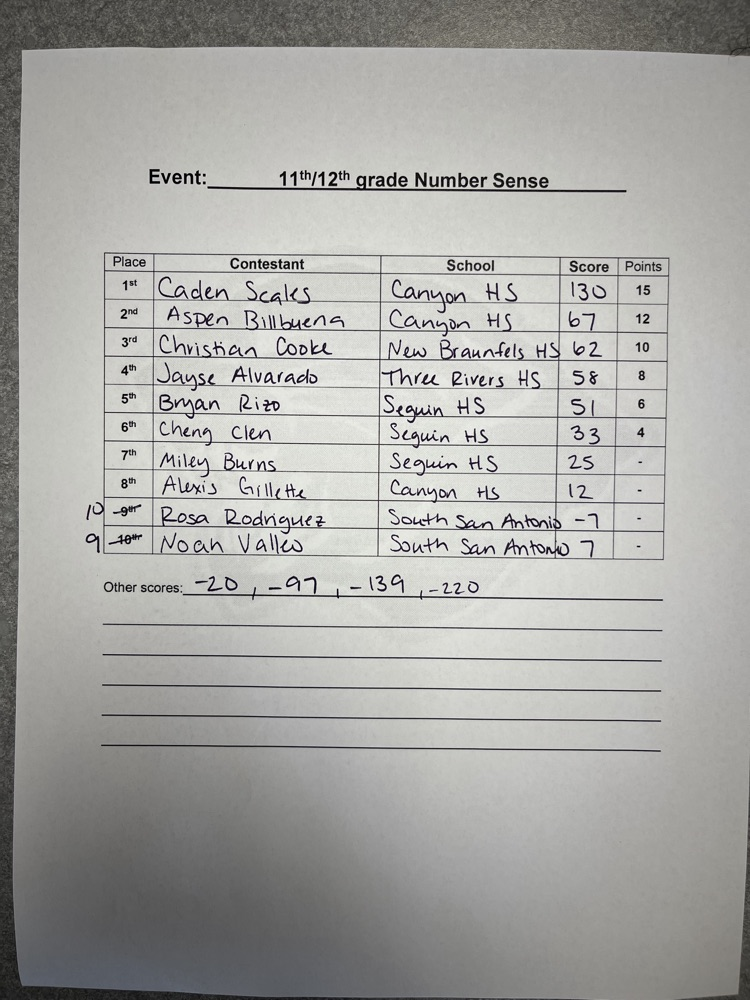 Event: 11th/12th grade Number Sense
Place Contestant School Score Points
1st Caden Scales Canyon HS 130 15
2nd Aspen Billbuena Canyon HS 67 12
3rd Christian Cooke New Braunfels HS 62 10
4th Jayse Alvarado Three Rivers HS 58 8
5th Bryan Rizo Seguin HS 51 6
6th Cheng Clen Seguin HS 33 4
7th Miley Burns Seguin HS 25 -
8th Alexis Gillette Canyon HS 12 -
10 9th Rosa Rodriguez South San Antonio -7 -
9 10th Noah Valleo South San Antonio 7 -
Other scores: -20, -97, -139, -220